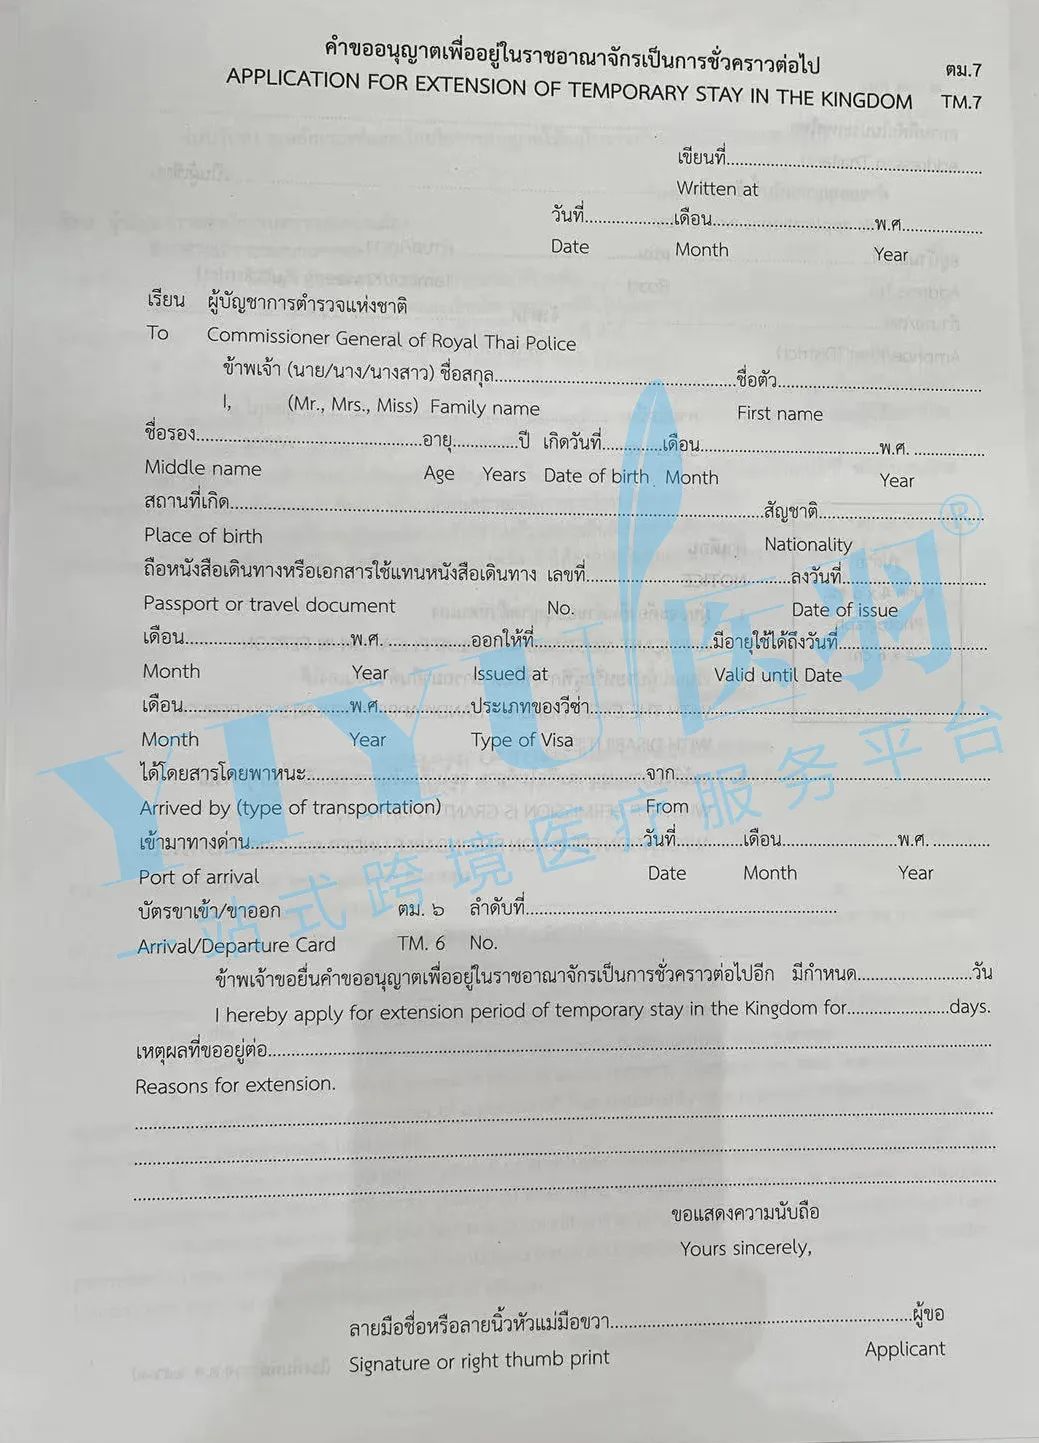 คำขออนุญาตเพื่ออยู่ในราชอาณาจักรเป็นการชั่วคราวต่อไป ตม.7
APPLICATION FOR EXTENSION OF TEMPORARY STAY IN THE KINGDOM TM.7
เขียนที่....................
Written at
วันที่..........เดือน....................พ.ศ...........
Date Month Year
เรียน ผู้บัญชาการตำรวจแห่งชาติ
To Commissioner General of Royal Thai Police
ข้าพเจ้า (นาย/นาง/นางสาว) ชื่อสกุล....................ชื่อตัว....................
I, (Mr., Mrs., Miss) Family name First name
ชื่อรอง....................อายุ..........ปี เกิดวันที่..........เดือน....................พ.ศ. ..........
Middle name Age Years Date of birth Month Year
สถานที่เกิด....................สัญชาติ....................
Place of birth Nationality
ถือหนังสือเดินทางหรือเอกสารใช้แทนหนังสือเดินทาง เลขที่....................ลงวันที่....................
Passport or travel document No. Date of issue
เดือน....................พ.ศ. ..........ออกให้ที่....................มีอายุใช้ได้ถึงวันที่....................
Month Year Issued at Valid until Date
เดือน....................พ.ศ...........ประเภทของวีซ่า....................
Month Year Type of Visa
ได้โดยสารโดยพาหนะ....................จาก....................
Arrived by (type of transportation) From
เข้ามาทางด่าน....................วันที่..........เดือน....................พ.ศ. ..........
Port of arrival Date Month Year
บัตรขาเข้า/ขาออก ตม. ๖ ลำดับที่....................
Arrival/Departure Card TM. 6 No.
ข้าพเจ้าขอยื่นคำขออนุญาตเพื่ออยู่ในราชอาณาจักรเป็นการชั่วคราวต่อไปอีก มีกำหนด....................วัน
I hereby apply for extension period of temporary stay in the Kingdom for....................days.
เหตุผลที่ขออยู่ต่อ....................
Reasons for extension.
ขอแสดงความนับถือ
Yours sincerely,
ลายมือชื่อหรือลายนิ้วหัวแม่มือขวา....................ผู้ขอ
Signature or right thumb print Applicant
YIYU医羽®
一站式跨境医疗服务平台